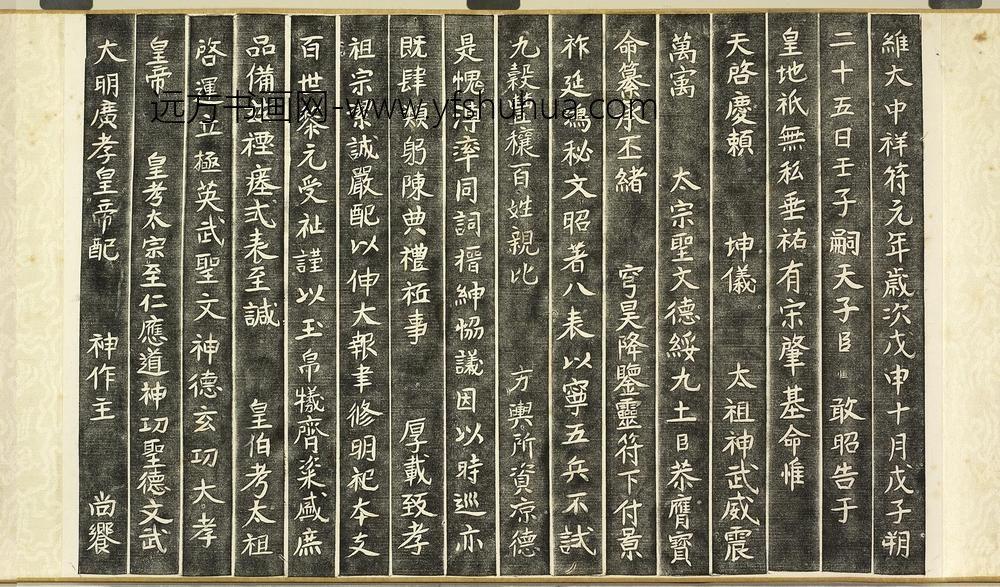 維大中祥符元年歲次戊申十月戊子朔
二十五日壬子嗣天子臣 敢昭告于
皇地祇無私垂祐有宗肇基命惟
天啓慶賴 坤儀 太祖神武威震
萬寓 太宗聖文德綏九土臣恭膺寶
命纂承丕緒 穹昊降鑒靈符下付景
祚延鴻秘文昭著八表以寧五兵不試
九穀豐穰百姓親比 方輿所資涼德
是愧溥率同詞搢紳恊議因以時巡亦
既肆類躬陳典禮祗事 厚載致孝
祖宗潔誠嚴配以伸大報聿修明祀本支
百世黎元受祉謹以玉帛犧齊粢盛庶
品備兹禋瘞式表至誠 皇伯考太祖
啓運立極英武聖文神德玄功大孝
皇帝 皇考太宗至仁應道神功聖德文武
大明廣孝皇帝配 神作主 尚饗
远方书画网-www.yfshuhua.com